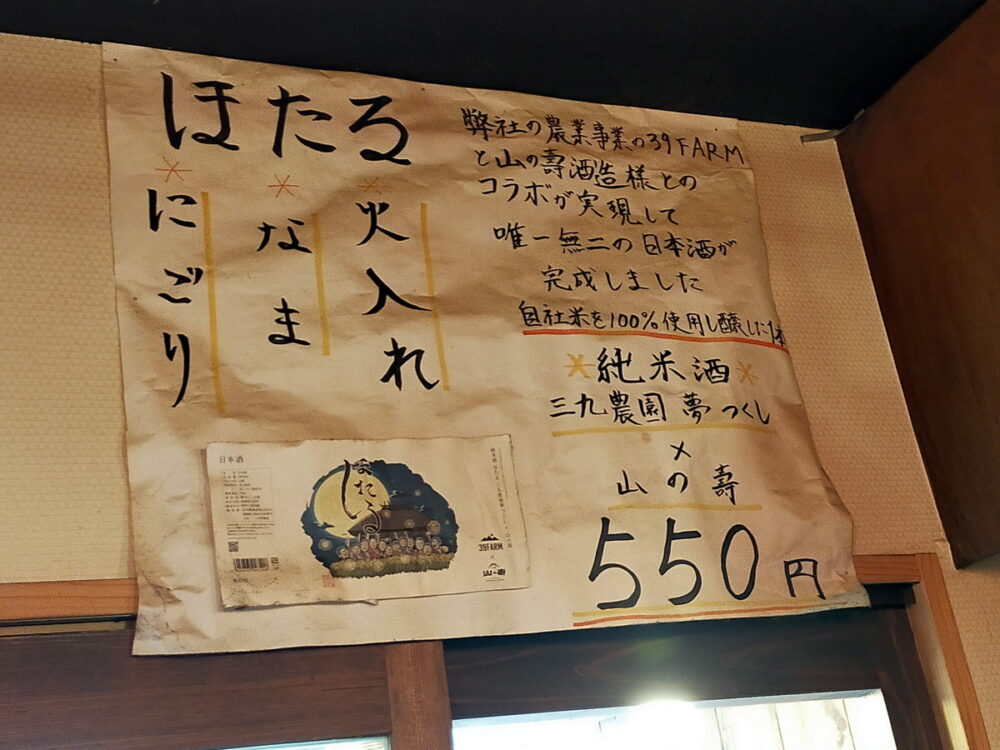 ほたる
※火入れ
※なま
※にごり
弊社の農業事業の39FARM
と山の壽酒造様との
コラボが実現して
唯一無二の日本酒が
完成しました
自社米を100%使用し醸した1本
※純米酒※
三九農園 夢つくし
×
山の壽
550円
日本酒
ほたる
39FARM
×
山の壽